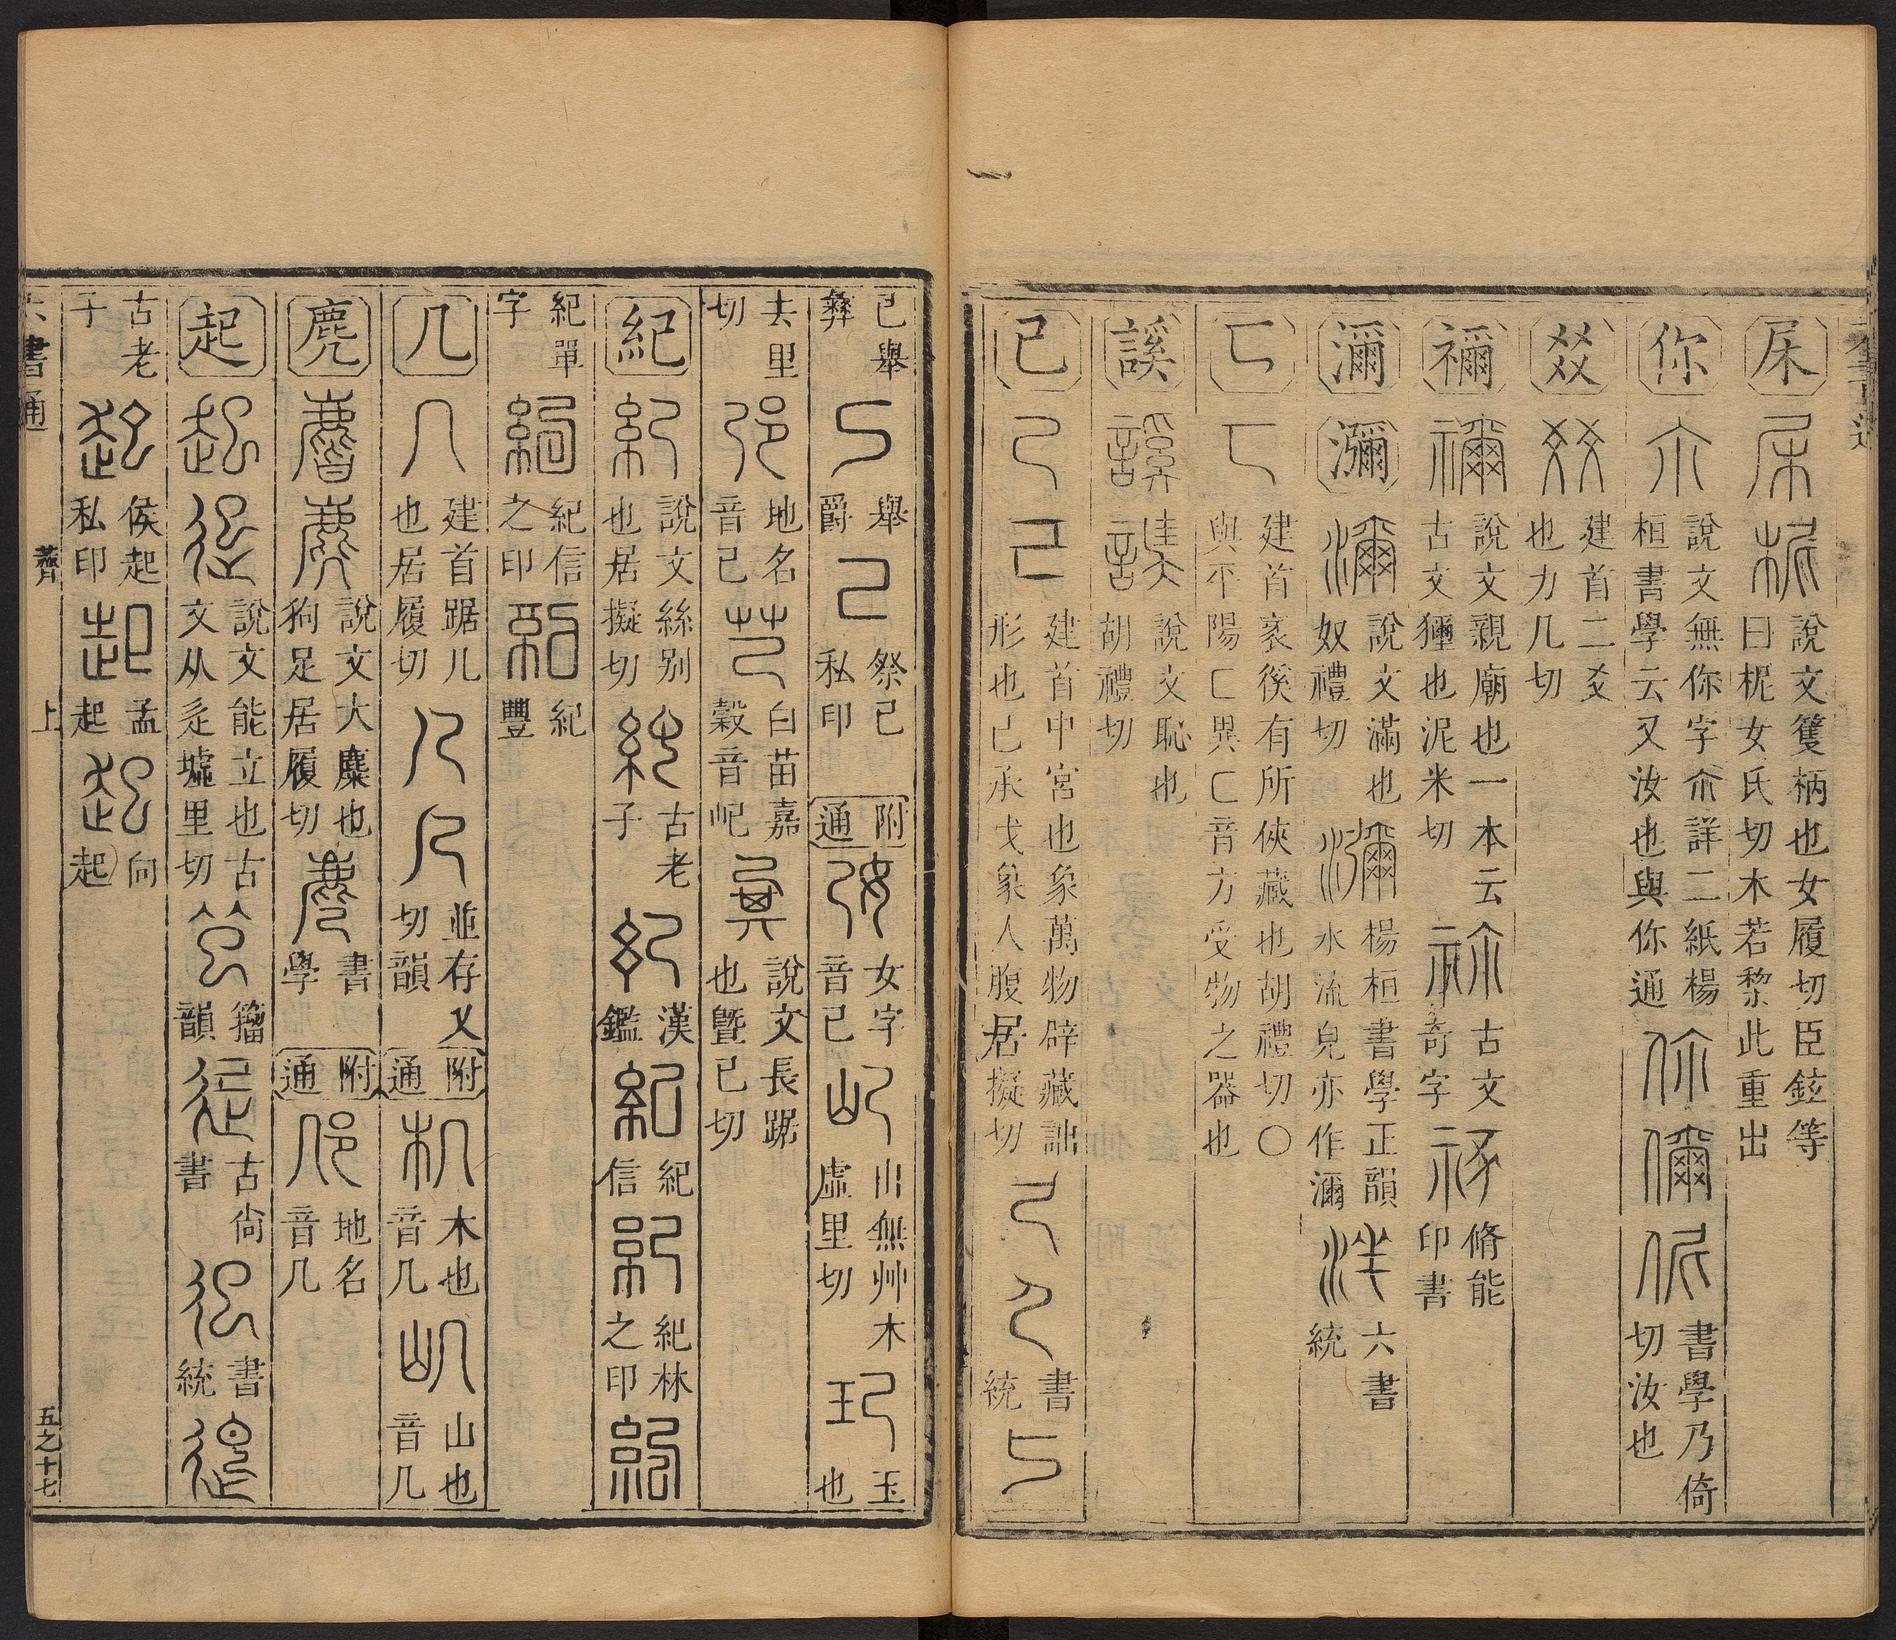 㞋 說文篗柄也女履切臣鉉等
曰柅女氏切木若棃此重出
你 說文無你字尒詳二紙楊
桓書學云又汝也與你通
書學乃倚
切汝也
㸚 建首二爻
也力几切
禰 說文親廟也一本云
古文獼也泥米切
古文
奇字
脩能
印書
瀰 說文滿也
奴禮切
楊桓書學正韻
水流皃亦作瀰
六書
統
匸 建首衺徯有所俠藏也胡禮切〇
與不陽匚異匚音方受物之器也
謑 說文恥也
胡禮切
己 建首中宮也象萬物辟藏詘
形也己承戊象人腹居擬切
書
統
己舉
彝
舉
爵
祭己
私印
附通
女字
音己
山無艸木
虛里切
玉
也
去里
切
地名
音己
白苗嘉
穀音屺
說文長踞
也曁己切
紀 說文絲别
也居擬切
古老
子
漢
鑑
紀
信
紀林
之印
紀單
字
紀信
之印
紀
豐
几 建首踞几
也居履切
並存乂
切韻
附通
木也
音几
山也
音几
麂 說文大麋也
狗足居履切
書
學
附通
地名
音几
起 說文能立也古
文从辵墟里切
籀
韻
古尙
書
書
統
古老
子
侯起
私印
孟
起
向
起
六書通
薺
上
五之十七